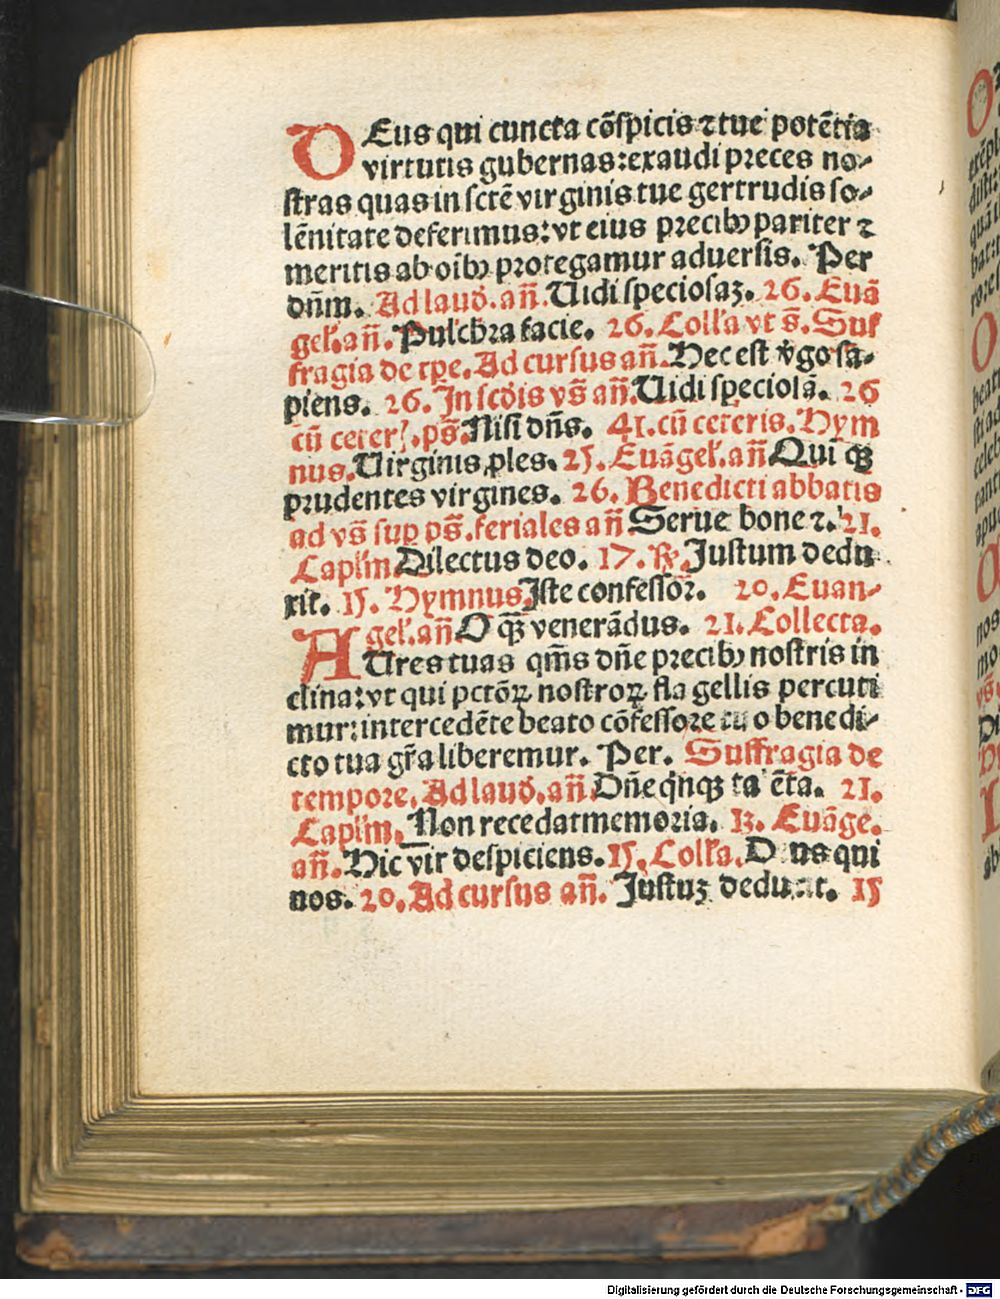 DEus qui cuncta cōspicis ⁊ tue potētia
virtutis gubernas: exaudi preces no-
stras quas in sctē virginis tue gertrudis so-
lēnitate deferimus: vt eius precibꝫ pariter ⁊
meritis ab oībꝫ protegamur aduersis. Per
dn̄m. Ad laud. an̄. Uidi speciosaꝫ. 26. Euā
gel̓. an̄. Pulchra facie. 26. Coll̓a vt s̄. Suf
fragia de tp̄e. Ad cursus an̄. Hec est v̓go sa-
piens. 26. In scd̄is vs̄ an̄. Uidi speciosā. 26
cū ceter⁊. ps̄. Nisi dn̄s. 41. cū ceteris. Hym
nus. Uirginis ꝓles. 25. Euāgel̓. an̄ Qui qꝫ
prudentes virgines. 26. Benedicti abbatis
ad vs̄ sup ps̄. feriales an̄ Serue bone ⁊. 21.
Capl̓m Dilectus deo. 17. ℞. Justum dedu
xit. 15. Hymnus. Iste confessor̄. 20. Euan-
gel̓. an̄ O qꝫ̄ venerādus. 21. Collecta.
AUres tuas qm̄s dn̄e precibꝫ nostris in
clina: vt qui pctōꝝ nostroꝝ flagellis percuti
mur: intercedēte beato cōfessore tuo benedi-
cto tua gr̄a liberemur. Per. Suffragia de
tempore. Ad laud. an̄. Dn̄e qn̄qꝫ ta ēta. 21.
Capl̓m. Non recedat memoria. 13. Euāge.
an̄. Hic vir despiciens. 15. Coll̓a. D us qui
nos. 20. Ad cursus an̄. Justuꝫ deduxit. 15
Digitalisierung gefördert durch die Deutsche Forschungsgemeinschaft - DFG